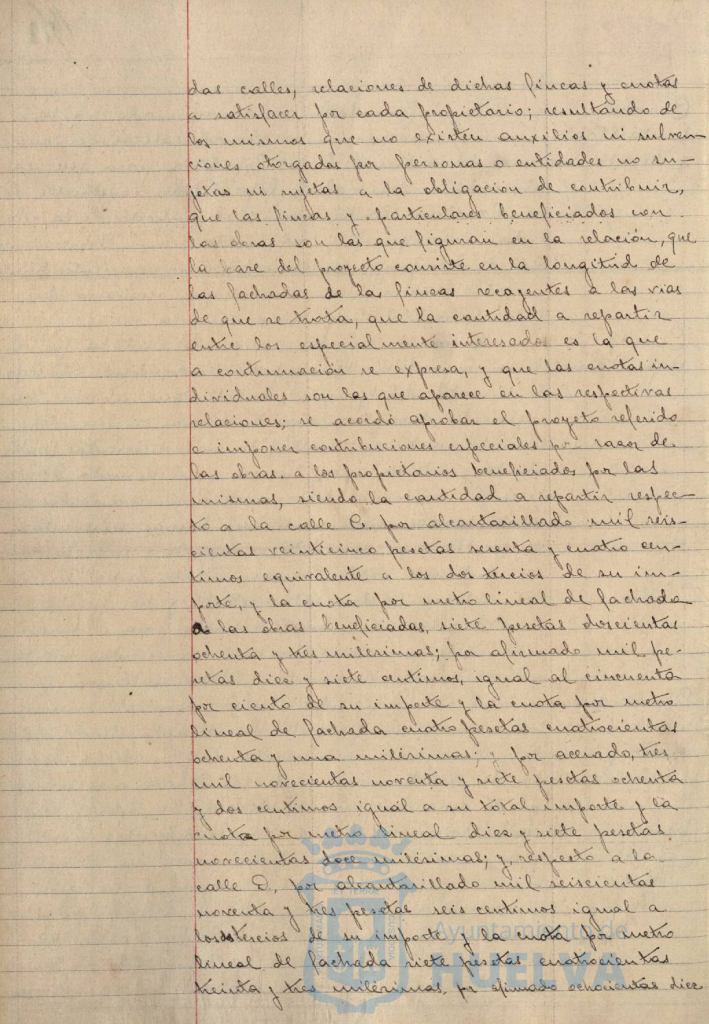 das calles, relaciones de dichas fincas y cuotas
a satisfacer por cada propietario; resultando de
los mismos que no existen auxilios ni subven-
ciones otorgadas por personas o entidades no su-
jetas ni sujetas a la obligacion de contribuir,
que las fincas y particulares beneficiados con
las obras son las que figuran en la relación, que
la base del proyecto consiste en la longitud de
las fachadas de las fincas recayentes a las vias
de que se trata, que la cantidad a repartir
entre los especialmente interesados es la que
a continuación se expresa, y que las cuotas in-
dividuales son las que aparece en las respectivas
relaciones; se acordó aprobar el proyecto referido
e imponer contribuciones especiales por razon de
las obras a los propietarios beneficiados por las
mismas, siendo la cantidad a repartir respec-
to a la calle C. por alcantarillado mil seis-
cientas veinticinco pesetas sesenta y cuatro cen-
timos equivalente a los dos tercios de su im-
porte, y la cuota por metro lineal de fachada
a las obras beneficiadas, siete pesetas doscientas
ochenta y tres milésimas; por afirmado mil pe-
setas diez y siete centimos, igual al cincuenta
por ciento de su importe y la cuota por metro
lineal de fachada cuatro pesetas cuatrocientas
ochenta y una milésimas; y por acerado, tres
mil novecientas noventa y siete pesetas ochenta
y dos centimos igual a su total importe y la
cuota por metro lineal diez y siete pesetas
novecientas doce milésimas; y, respecto a la
calle D, por alcantarillado mil seiscientas
noventa y tres pesetas seis centimos igual a
los dos tercios de su importe y la cuota por metro
lineal de fachada siete pesetas cuatrocientas
treinta y tres milésimas, por afirmado ochocientas diez
Ayuntamiento de
HUELVA